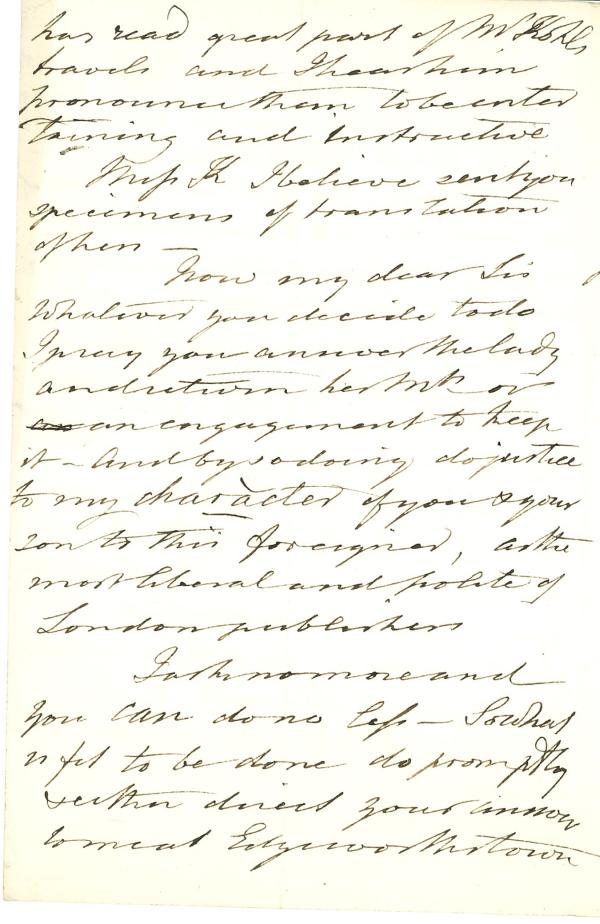 has read great part of Mr Kohls
travels and I hear him
pronounce them to be enter
taining and instructive
Miss K I believe sent you
specimens of translation
of hers —
Now my dear Sir
Whatever you decide to do
I pray you answer the lady
and return her Ms or
an engagement to keep
it — And by so doing do justice
to my character of you & your
son to this foreigner, as the
most liberal and polite of
London publishers
I ask no more and
you can do no less — So what
is fit to be done do promptly
&
direct your answer
to me at Edgeworthstown